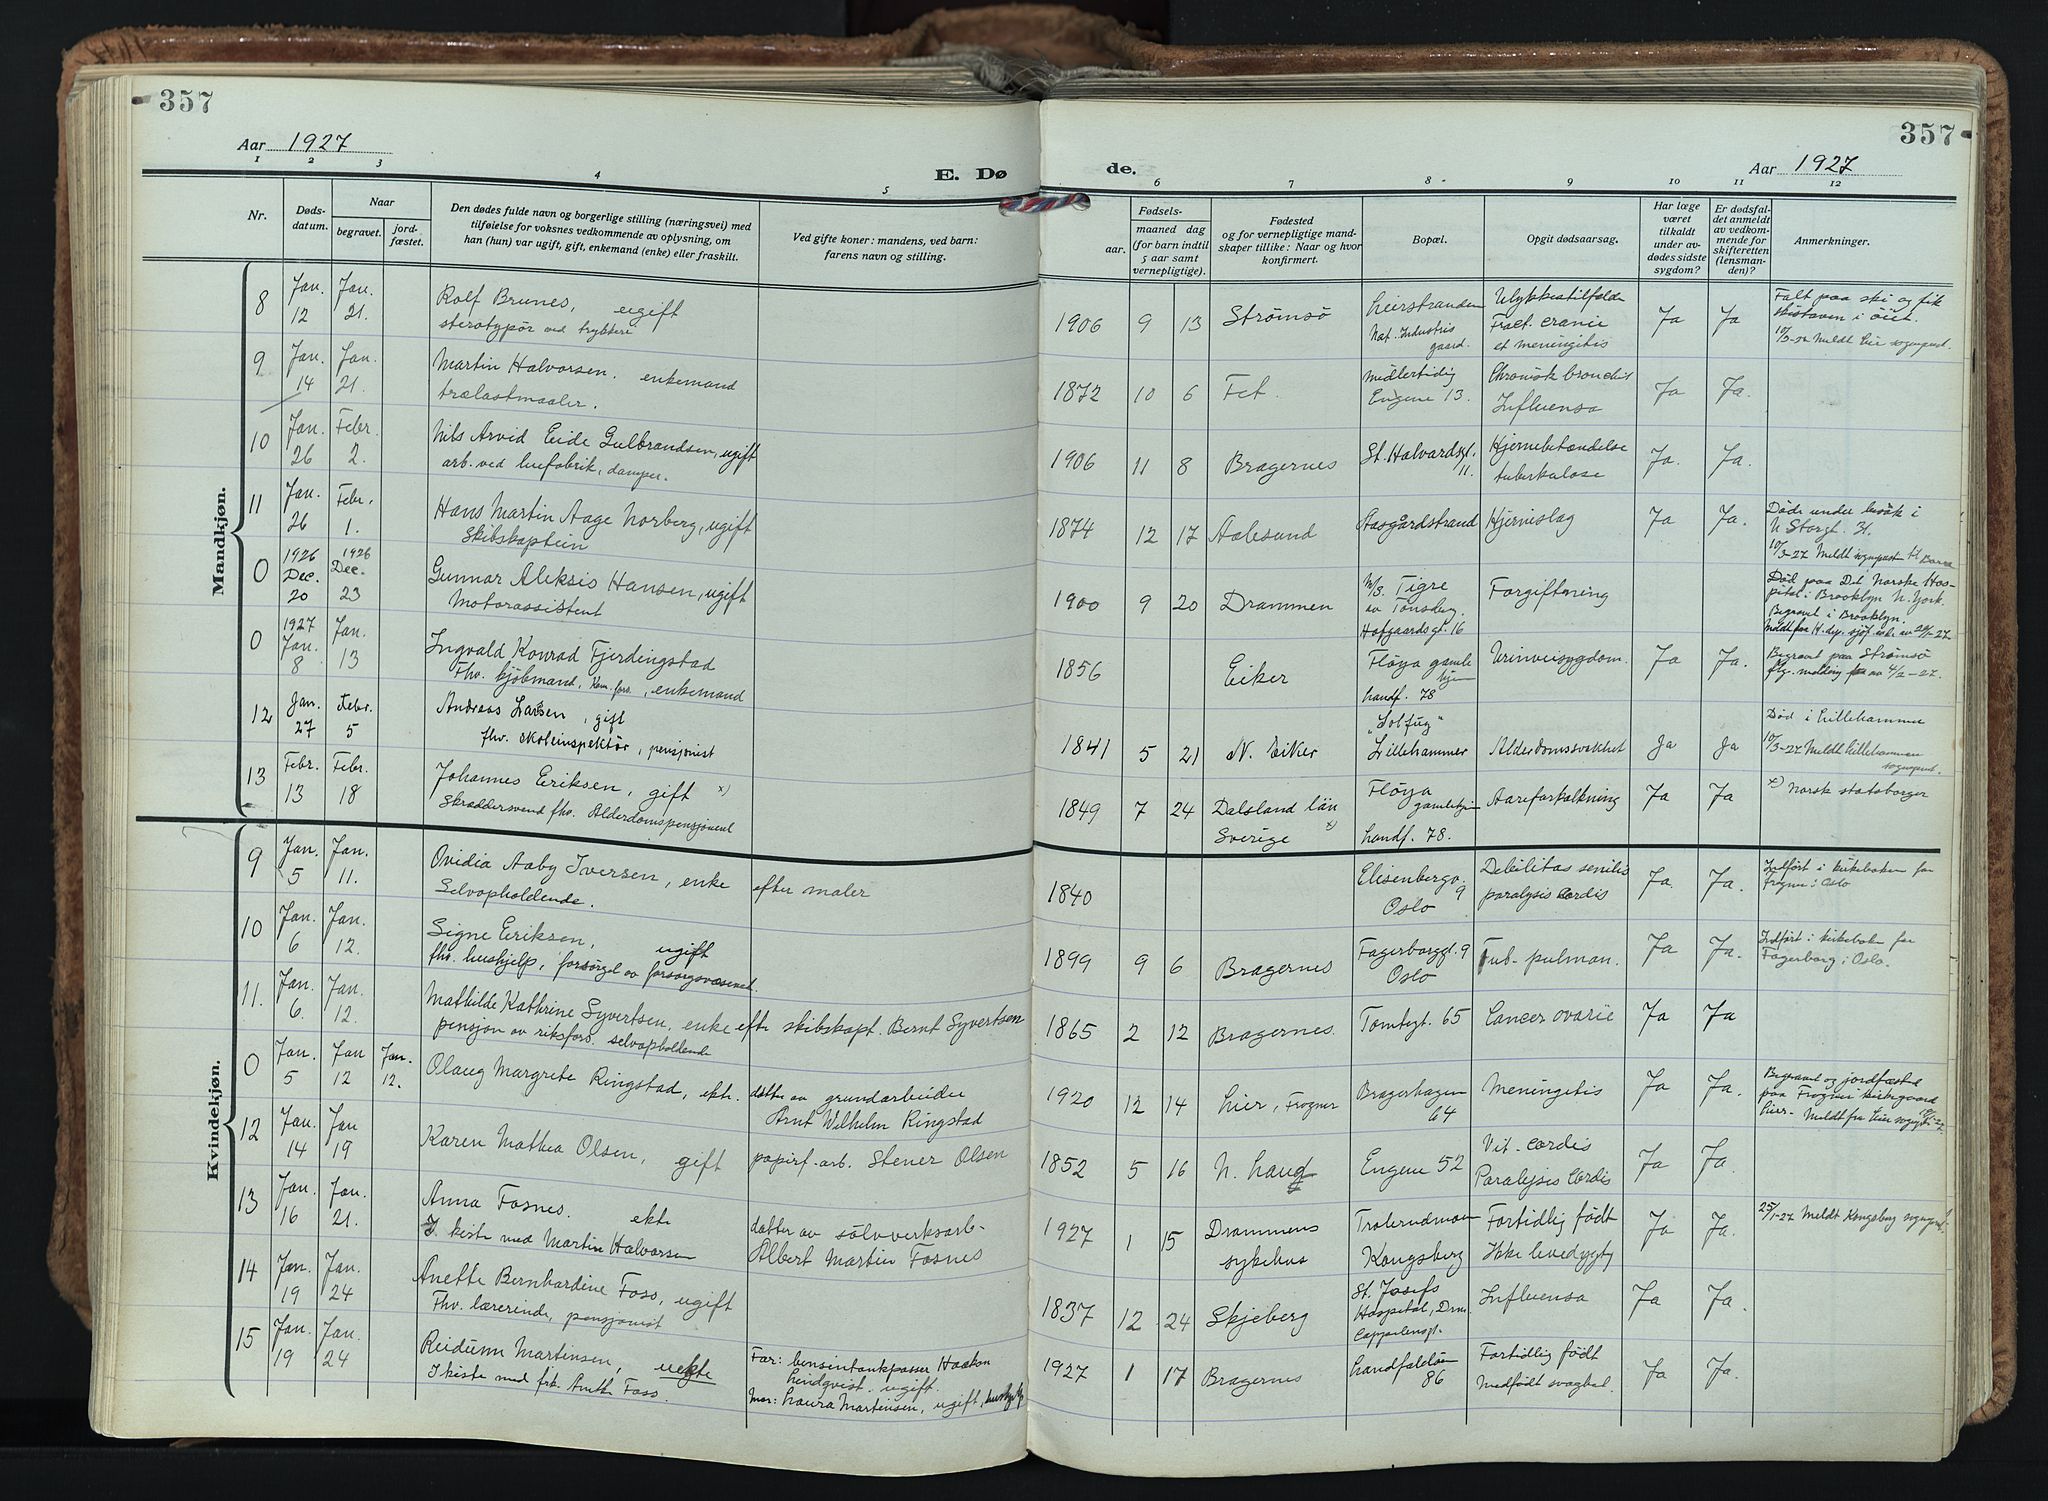 357
Aar 1927
E. Dø
1 2 3 4 5
Nr.
Døds-
datum.
Naar
begravet.
jord-
fæstet.
Den dødes fulde navn og borgerlige stilling (næringsvei) med
tilføielse for voksnes vedkommende av oplysning, om
han (hun) var ugift, gift, enkemand (enke) eller fraskilt.
Ved gifte koner: mandens, ved barn:
farens navn og stilling.
Mandkjøn.
8 Jan. 12 Jan. 21. Rolf Brunes, ugift
sterotypør ved trykkeri
9 Jan. 14 Jan. 21. Martin Halvorsen. enkemand
trælastmaaler.
10 Jan. 26 Febr. 2. Nils Arvid Eide Gulbrandsen, ugift
arb. ved huefabrik, damper.
11 Jan. 26 Febr. 1. Hans Martin Aage Norberg, ugift
Skibskaptein
0 1926 Dec. 20 1926 Dec. 23 Gunnar Aleksis Hansen, ugift
Motorassistent
0 1927 Jan. 8 Jan. 13 Ingvald Konrad Fjerdingstad
Fhv. kjøbmand, Kom. fors., enkemand
12 Jan. 27 Febr. 5 Andreas Larsen, gift
fhv. skoleinspektør, pensjonist
13 Febr. 13 Febr. 18 Johannes Eriksen, gift x)
Skræddersvend fhv. Alderdomspensjonist
Kvindekjøn.
9 Jan. 5 Jan. 11. Ovidia Aaby Iversen, enke efter maler
Selvopholdende.
10 Jan. 6 Jan. 12. Signe Eriksen, ugift
fhv. hushjelp, forsørget av forsorgsvæsenet.
11. Jan. 6. Jan. 12. Mathilde Kathrine Syvertsen, enke efter skibskapt. Bernt Syvertsen
pensjon av riksfors. selvopholdende
0 Jan. 5 Jan 12 Jan. 12. Olaug Margrete Ringstad, ekte. datter av grundarbeider
Arnt Wilhelm Ringstad
12 Jan. 14 Jan 19 Karen Mathea Olsen, gift papirf. arb. Stener Olsen
13 Jan. 16 Jan. 21. Anna Fosnes. ekte datter av sølvverksarb-
I kiste med Martin Halvorsen Albert Martin Fosnes
14 Jan. 19 Jan. 24 Anette Bernhardine Foss, ugift
Fhv. lærerinde, pensjonist
15 Jan. 19 Jan. 24 Reidunn Martinsen, uekte
I kiste med frk. Anette Foss.
Far: bensintankpasser Haakon
Lindqvist. ugift.
Mor: Laura Martinsen, ugift, hushjelp
357
Aar 1927
de.
6 7 8 9 10 11 12
aar.
Fødsels-
maaned dag
(for barn indtil
5 aar samt
vernepligtige).
Fødested
og for vernepligtige mand-
skaper tillike: Naar og hvor
konfirmert.
Bopæl.
Opgit dødsaarsag.
Har læge
været
tilkaldt
under av-
dødes sidste
sygdom?
Er dødsfal-
det anmeldt
av vedkom-
mende for
skifteretten
(lensman-
den)?
Anmerkninger.
1906 9 13 Strømsø Lierstranden
Nat. Industris
gaard.
Ulykkestilfælde
Fract. cranie
et meningitis
Ja Ja
Falt paa ski og fik
skistaven i øiet.
10/3-27 Meldt Lier sogneprest.
1872 10 6 Fet. Midlertidig
Engene 13.
Chronisk bronchit
Influensa
Ja Ja.
1906 11 8 Bragernes St. Halvardsgt.
11.
Hjernebetændelse
tuberkuløse
Ja. Ja.
1874 12 17 Aalesund Aasgårdstrand Hjerneslag Ja Ja.
Døde under besøk i
N Storgt. 31.
10/3-27 Meldt sogneprest til Borre
1900 9 20 Drammen M/S. Tigre
av Tønsberg.
Hofgaardsgt. 16
Forgiftning
Død paa Det Norske Hos-
pital i Brooklyn N. York.
Begravet i Brooklyn.
1856 Eiker Fløya gamle
hjem
Landf. 78
Urinveisygdom. Ja Ja.
Begravet paa Strømsø
flg. melding av 4/2-27.
1841 5 21 N. Eiker "Solfug"
Lillehammer
Alderdomssvækhet Ja Ja
Død i Lillehammer
10/3-27 Meldt Lillehammer
sogneprest.
1849 7 24 Dalsland län
Sverige x)
Fløya
gamlehjem
Landf. 78.
Aareforkalkning Ja Ja
x) Norsk statsborger
1840 Elisenbergv.
9
Oslo
Debilitas senilis
paralysis cordis
Ja. Ja.
Indført i kirkeboken for
Frogner i Oslo
1899 9 6 Bragernes Fagerborggt. 9
Oslo
Tub. pulman. Ja Ja.
Indført i kirkeboken for
Fagerborg i Oslo.
1865 2 12 Bragernes. Tomtegt. 65 Cancer ovarie Ja Ja
1920 12 14 Lier, Frogner Bragerhagen
64
Meningitis Ja Ja.
Begravet og jordfæstet
paa Frogner kirkegaard
Lier.
1852 5 16 N. Haug Engene 52 Vit. cordis
Paralysis cordis
Ja Ja.
1927 1 15 Drammens
sykehus
Kongsberg
Fortidlig født
Ikke levedygtig
Ja Ja.
25/1-27 Meldt Kongsberg sogneprest.
1837 12 24 Skjeberg St. Josefs
Hospital, Drm.
Cappelensgt.
Influensa Ja Ja.
1927 1 17 Bragernes Landfaldøen
86
Fortidlig født
Medfødt svaghet.
Ja Ja.